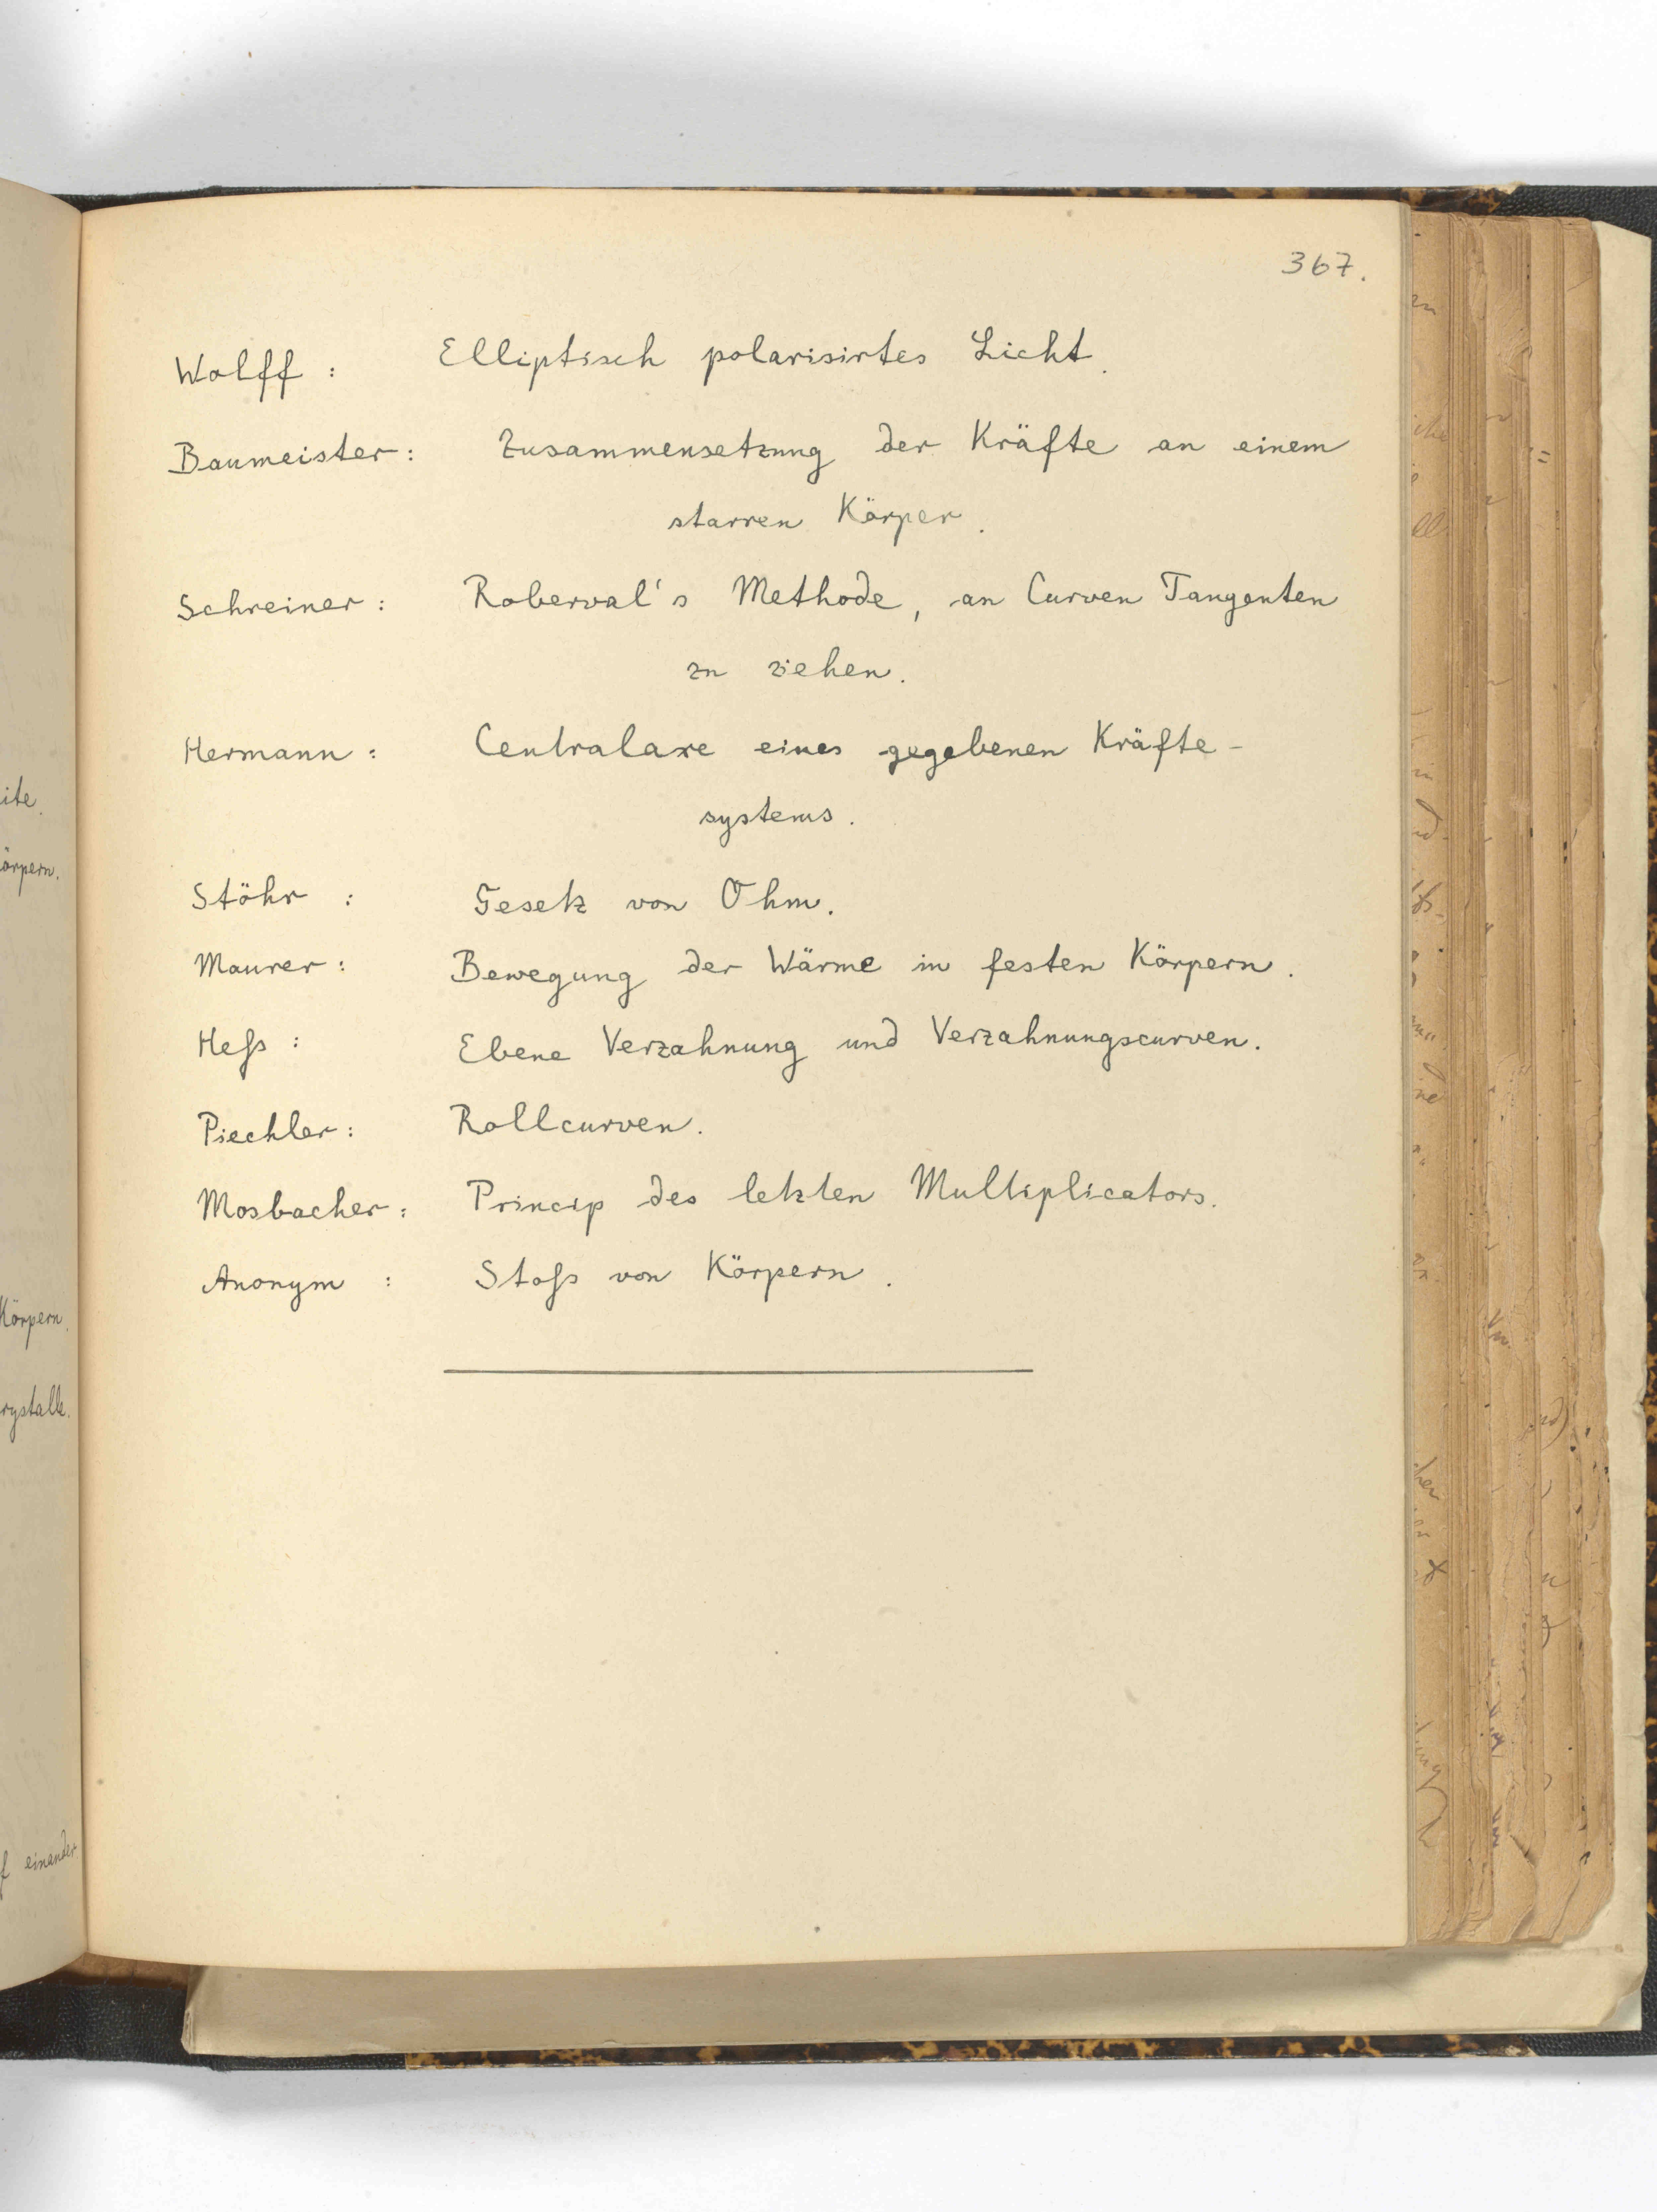 367.
Wolff : Elliptisch polarisirtes Licht.
Baumeister : Zusammensetzung der Kräfte an einem
starren Körper.
Schreiner : Roberval's Methode, an Curven Tangenten
zu ziehen.
Hermann : Centralaxe eines gegebenen Kräfte-
systems.
Stöhr : Gesetz von Ohm.
Maurer : Bewegung der Wärme in festen Körpern.
Heß : Ebene Verzahnung und Verzahnungscurven.
Piechler : Rollcurven.
Mosbacher : Princip des letzten Multiplicators.
Anonym : Stoß von Körpern.